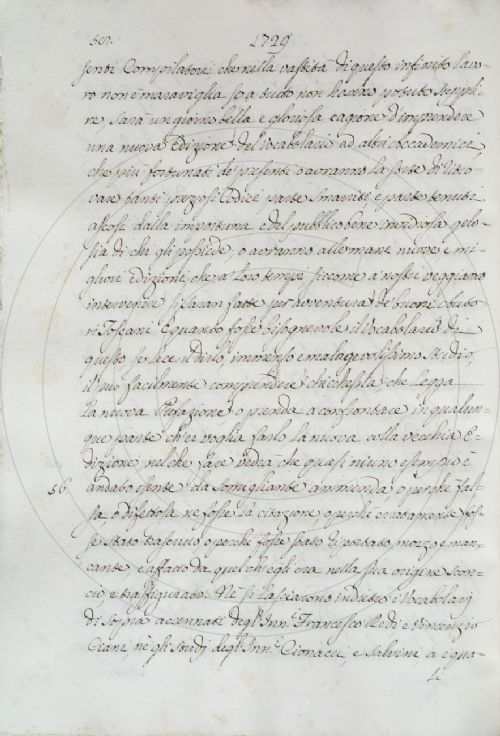 501.
1729
senti Compilatori che nella vastità di questo infinito lavo=
ro non è maraviglia se a tutto non hanno potuto suppli=
re, sarà un giorno bella e gloriosa cagione d'imprendere
una nuova Edizione del Vocabolario ad altri Accademici,
che più fortunati de' presenti o avranno la sorte di ritro=
vare tanti preziosi Codici parte smarriti e parte tenuti
ascosi dalla importuna e del pubblico bene invidiosa gelo=
sia di chi gli possiede, o avranno alle mani nuove e mi=
gliori edizioni, che a' loro tempi siccome a' nostri veggiamo
intervenire si saran fatte per avventura de' buoni Auto=
ri Toscani. E quando fosse bisognevole il Vocabolario di
questo se lice udirlo, immenso e malagevolissimo studio,
il può facilmente comprendere chicchessia che legga
la nuova Prefazione, o prenda a confrontare in qualun=
que parte ch'ei voglia farlo la nuova colla vecchia E=
dizione, nel che fare vedrà che quasi niuno esempio è
56. andato esente da somigliante ammenda o perchè fal=
sa, o difettosa ne fosse la citazione, o perchè erratamente fos=
se stato trascritto o perchè fosse stato riportato mozzo e man=
cante e affatto da quel ch'egli era nella sua origine scon=
cio, e trasfigurato. Nè si lasciarono indietro i Vocabolarj
di sopra accennati degl'Inn.i Francesco Redi e Vincenzio
Ciani, nè gli studj degl'Inn.i Cionacci, e Salvini a i qua=
li